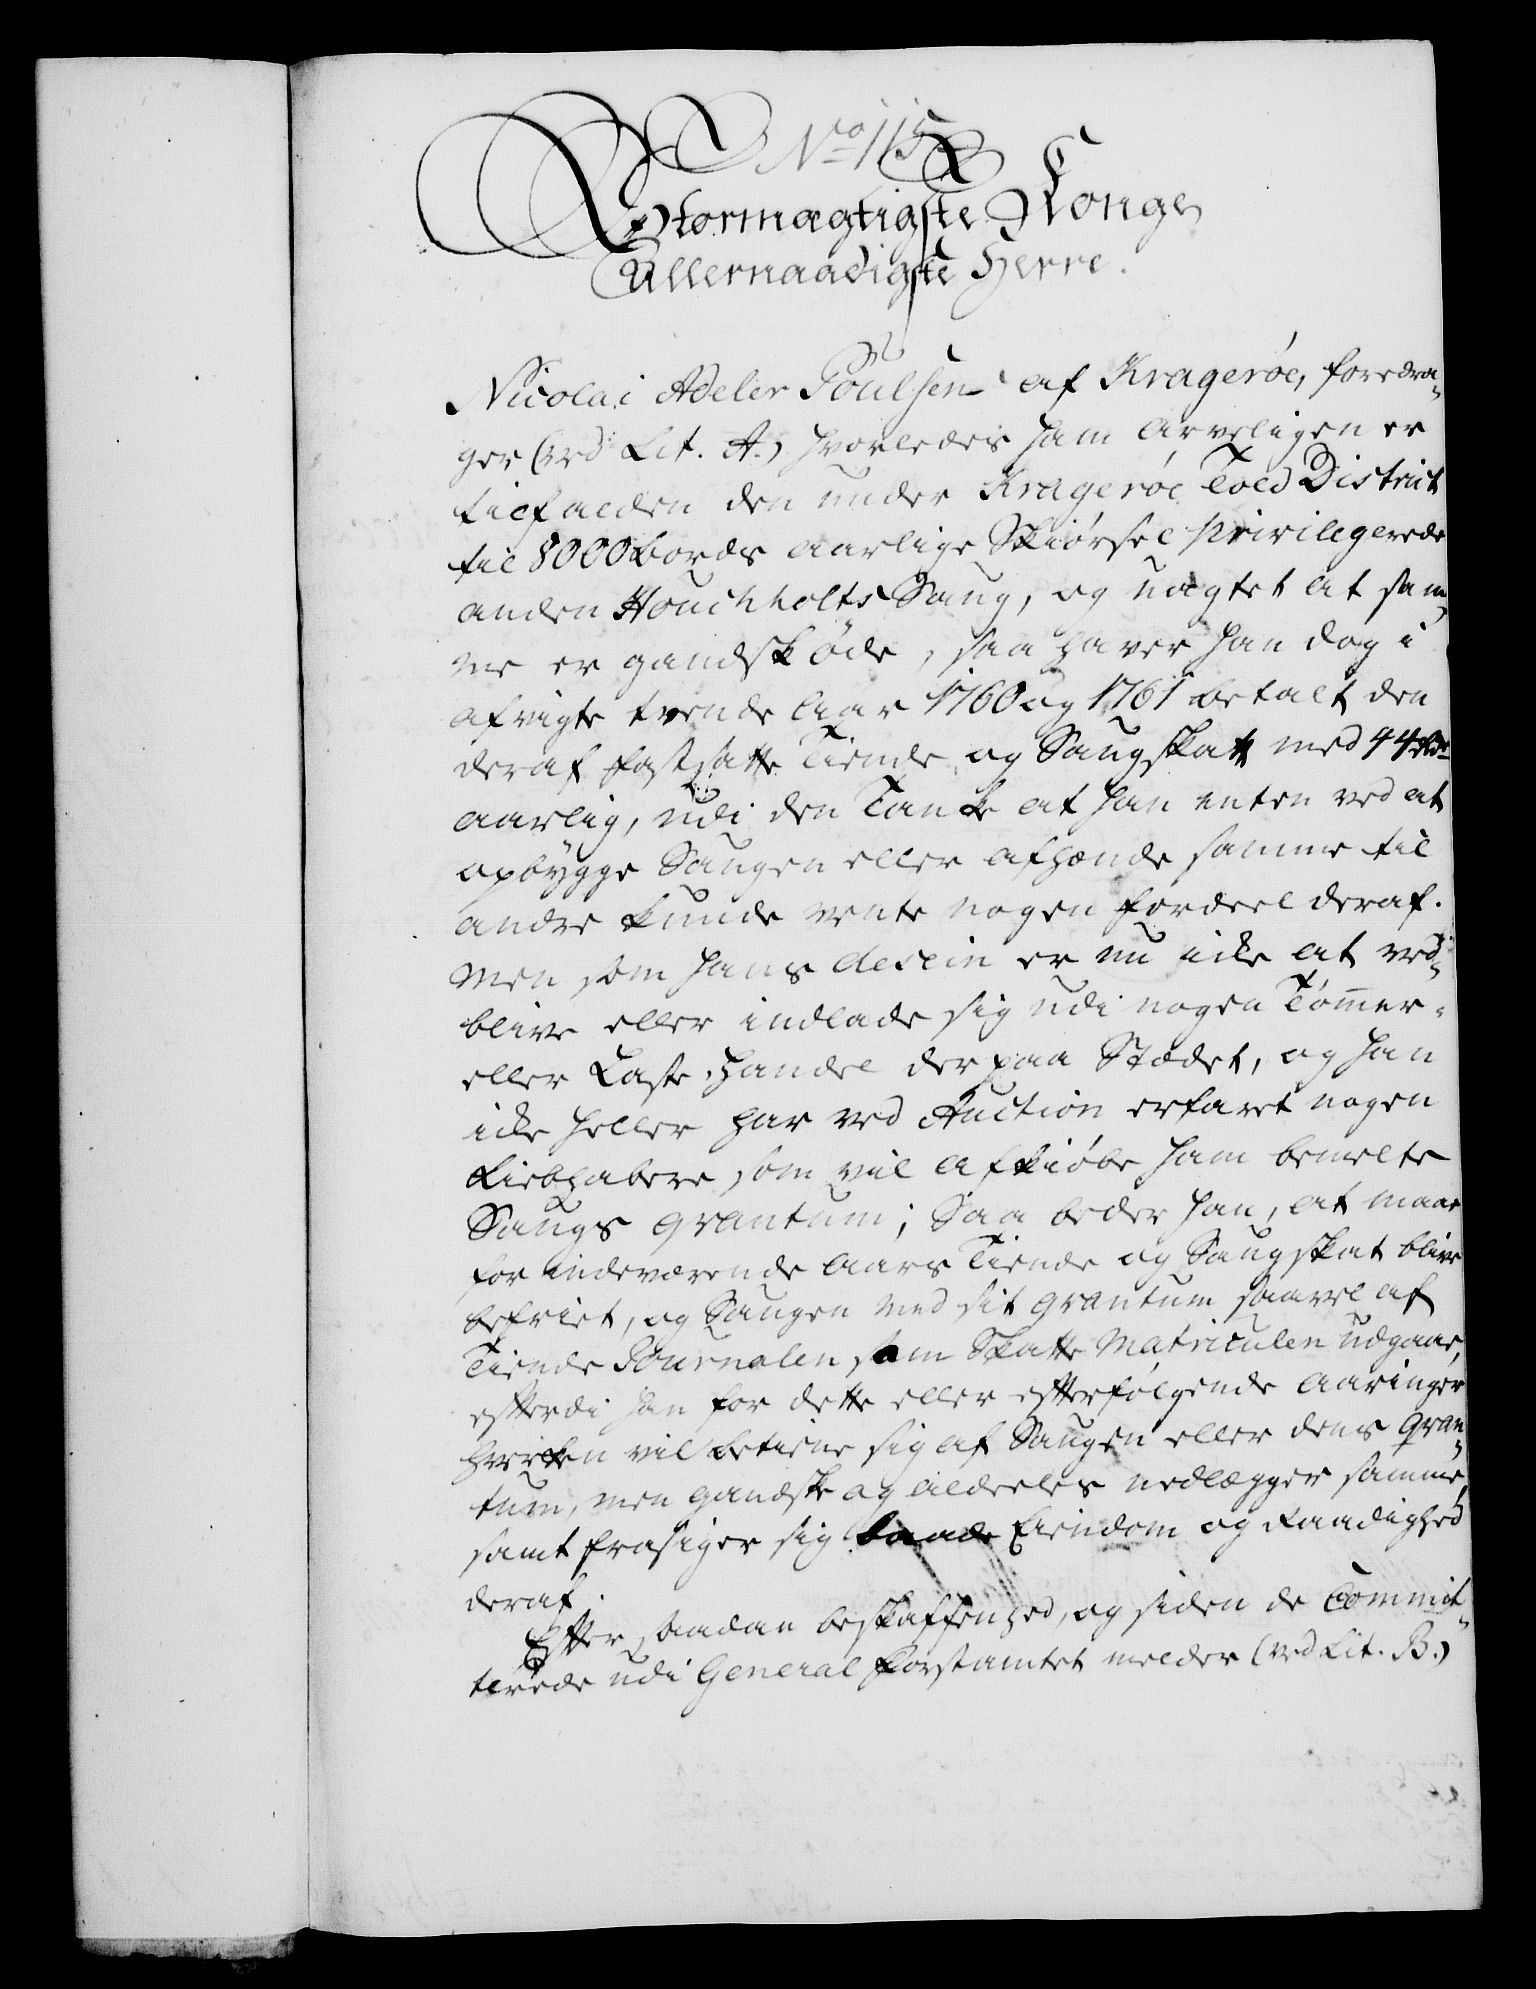 No 115
Stormægtigste Konge
Allernaadigste Herre.
Nicolai Adeler Poulsen af Kragerøe, foredra-
ger (ved Lit. A.) hvorledes ham arveligen er
tilfalden den under Kragerøe Told District
til 8000 bords aarlige Skiørsel privilegerede
anden Houchholts Saug, og uagtet at sam-
me er gandsk øde, saa haver han dog i
afvigte tvende Aar 1760 og 1761 betalt den
deraf fastsatte Tiende og Saugskatt med 44 rdr
aarlig, udi den Tanke at han enten ved at
opbygge Saugen eller afhænde samme til
andre kunde vente nogen fordeel deraf.
Men som hans dessein er nu icke at ved-
blive eller indlade sig udi nogen Tømmer-
eller Laste-Handel der paa Stædet, og han
icke heller har ved Auction erfaret nogen
Liebhabere som vil afkiøbe ham bemelte
Saugs qvantum; Saa beder han, at maae
for indeværende Aars Tiende og Saugskat blive
befriet, og Saugen med sit qvantum saavel af
Tiende Journalen som Skatte Matriculen udgaae,
efterdi han for dette eller efterfølgende Aaringer
hverken vil betiene sig af Saugen eller dens qvan-
tum, men gandske og aldeeles nedlægger samme
samt frasiger sig baade Eiendom og Raadighed
deraf.
Efter saadan beskaffenhed, og siden de Commit-
terede udi General Forstamtet melder (ved Lit. B.)